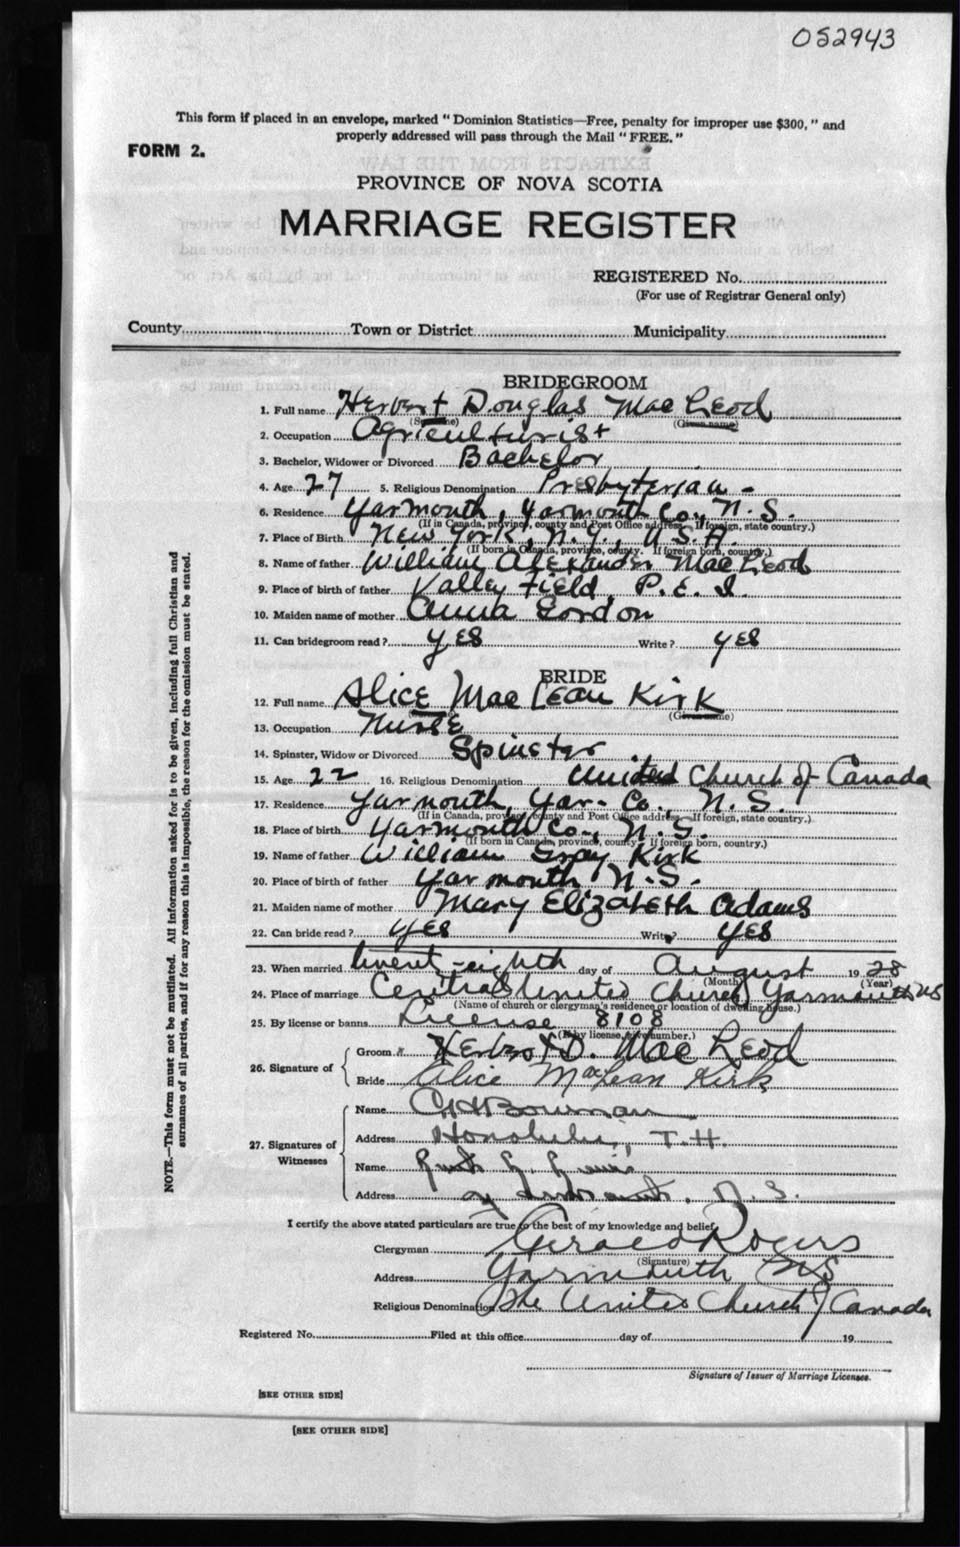 052943
This form if placed in an envelope, marked "Dominion Statistics—Free, penalty for improper use $300," and
properly addressed will pass through the Mail "FREE."
FORM 2.
PROVINCE OF NOVA SCOTIA
MARRIAGE REGISTER
REGISTERED No.
(For use of Registrar General only)
County Town or District Municipality
BRIDEGROOM
1. Full name Herbert Douglas MacLeod
(Surname) (Given name)
2. Occupation Agriculturist
3. Bachelor, Widower or Divorced Bachelor
4. Age 27 5. Religious Denomination Presbyterian -
6. Residence Yarmouth, Yarmouth Co., N.S.
(If in Canada, province, county and Post Office address. If foreign, state country.)
7. Place of Birth New York, N.Y., U.S.A.
(If born in Canada, province, county. If foreign born, country.)
8. Name of father William Alexander MacLeod
9. Place of birth of father Valley Field, P.E.I.
10. Maiden name of mother Anna Gordon
11. Can bridegroom read? yes Write? yes
BRIDE
12. Full name Alice MacLean Kirk
(Given name)
13. Occupation Nurse
14. Spinster, Widow or Divorced Spinster
15. Age 22 16. Religious Denomination United Church of Canada
17. Residence Yarmouth, Yar- Co., N.S.
(If in Canada, province, county and Post Office address. If foreign, state country.)
18. Place of birth Yarmouth Co., N.S.
(If born in Canada, province, county. If foreign born, country.)
19. Name of father William Gray Kirk
20. Place of birth of father Yarmouth, N.S.
21. Maiden name of mother Mary Elizabeth Adams
22. Can bride read? yes Write? yes
23. When married twenty-eighth day of August 1928
(Month) (Year)
24. Place of marriage Central United Church Yarmouth NS
(Name of church or clergyman's residence or location of dwelling house.)
25. By license or banns License 8108
(If by license, give number.)
26. Signature of
Groom Herbert D. MacLeod
Bride Alice MacLean Kirk
27. Signatures of Witnesses
Name Bowman
Address Honolulu, T.H.
Name Ruth
Address Yarmouth, N.S.
I certify the above stated particulars are true to the best of my knowledge and belief,
Clergyman Gerald Rogers
(Signature)
Address Yarmouth NS
Religious Denomination The United Church of Canada
Registered No. Filed at this office day of 19
Signature of Issuer of Marriage Licenses.
[SEE OTHER SIDE]
[SEE OTHER SIDE]
NOTE.—This form must not be mutilated. All information asked for is to be given, including full Christian and
surnames of all parties, and if for any reason this is impossible, the reason for the omission must be stated.